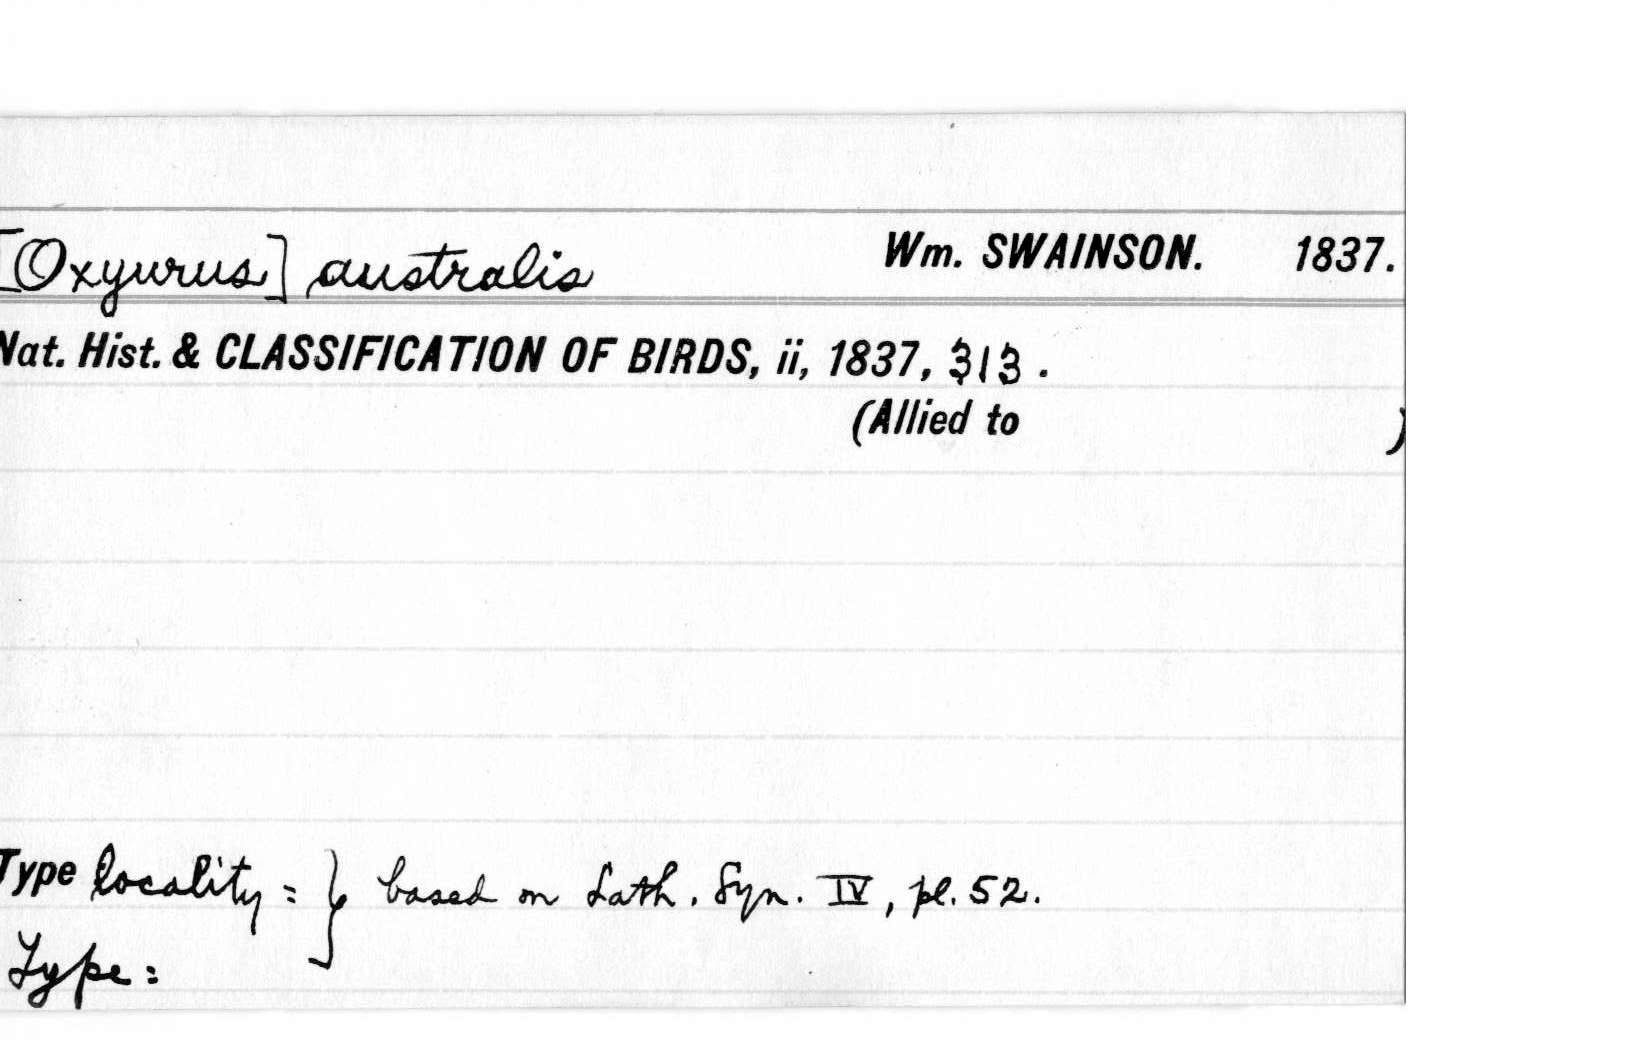 [Oxyurus] australis Wm. SWAINSON. 1837.
Nat. Hist. & CLASSIFICATION OF BIRDS, ii, 1837, 313.
(Allied to )
Type locality = } based on Lath. Syn. IV, pl. 52.
Type =